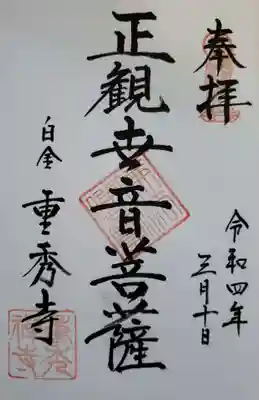 奉拝
令和四年
三月十日
正観世音菩薩
白金 重秀寺